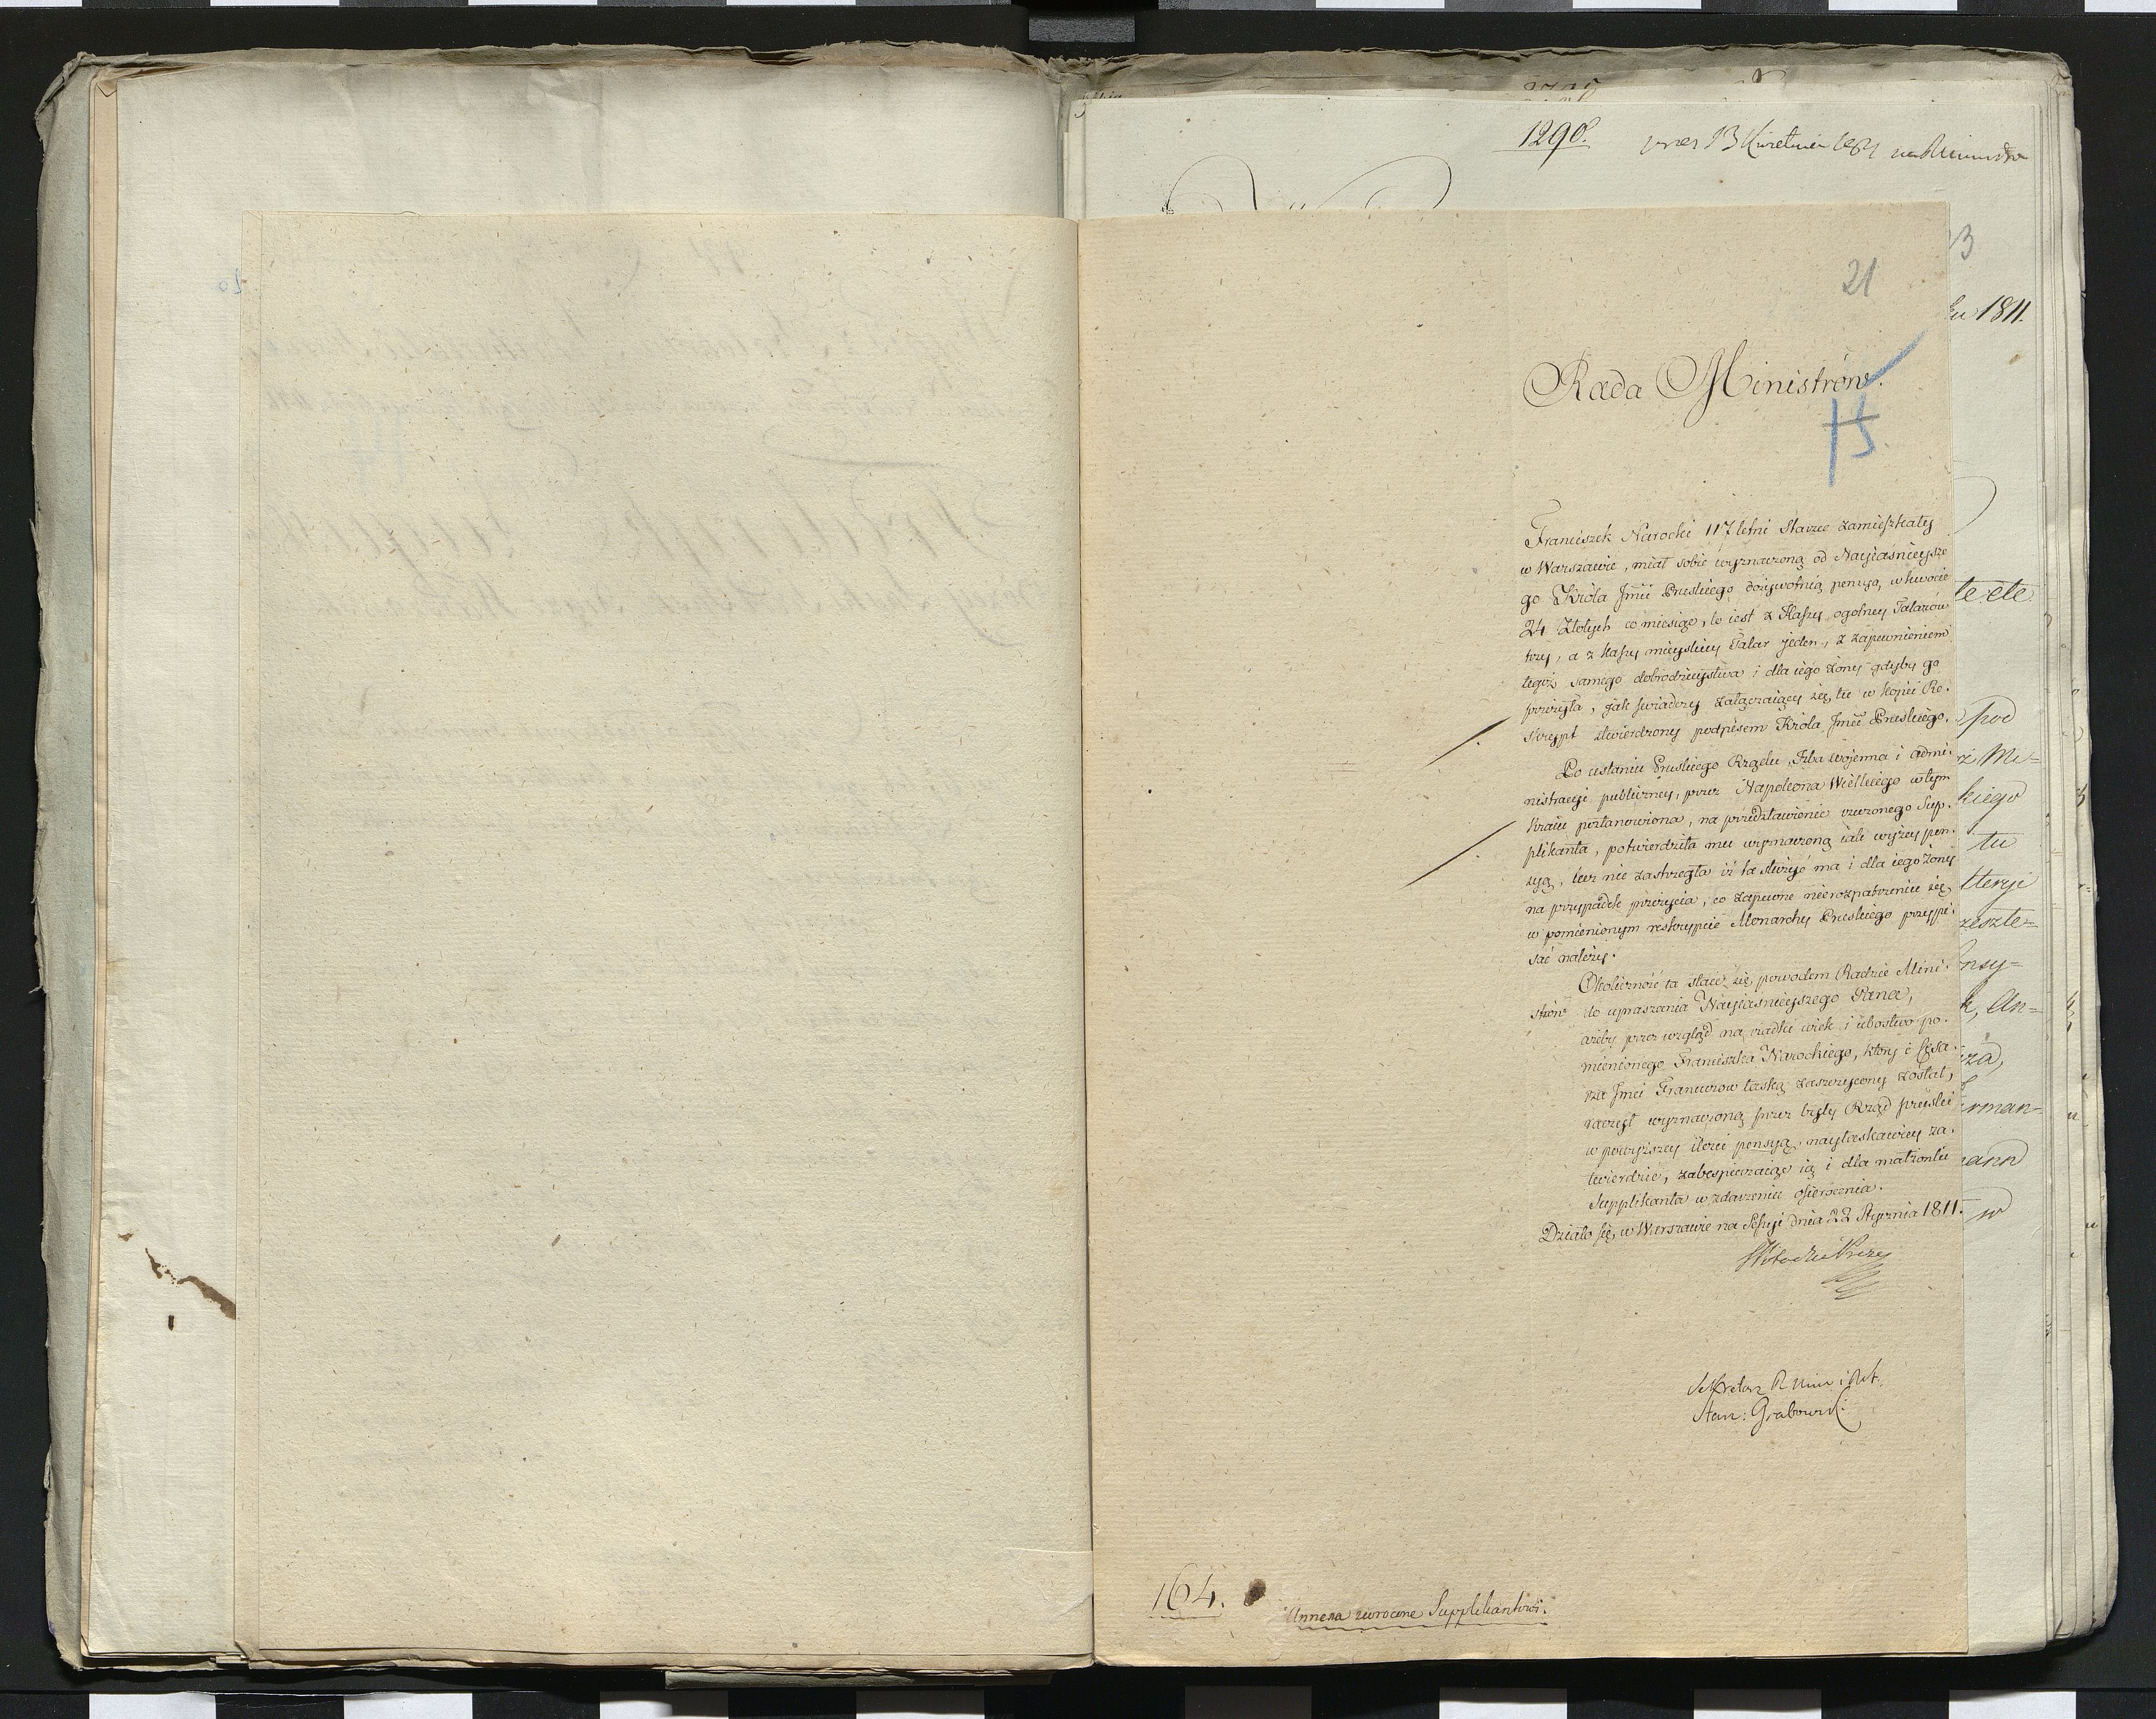 1290.
13
ku 1811.
21
Rada Ministrów.
15.
Franciszek Narocki 117 letni Starzec zamieszkały
w Warszawie, miał sobie wyznaczoną od Nayiaśnieysze
go Króla Jmći Pruskiego dożywotnią pensyą, w kwocie
24 Złotych co miesiąc, to iest z Kassy ogolney Talarów
trzy, a z kassy mieyskiey Talar jeden, z zapewnieniem
tegoż samego dobrodzieystwa i dla iego żony gdyby go
przeżyła, jak świadczy załączaiący się tu w kopii Re-
skrypt stwierdzony podpisem Króla Jmći Pruskiego.
Po ustaniu Pruskiego Rządu, Izba woienna i admi-
nistracyi publiczney, przez Napoleona Wielkiego w tym
Kraiu postanowiona, na przedstawienie rzeczonego Sup-
plikanta, potwierdziła mu wyznaczoną iak wyżey pen-
syą, lecz nie zastrzegła iż ta służyć ma i dla iego żony
na przypadek przeżycia, co zapewne nierozpatrzeniu się
w pomienionym reskrypcie Monarchy Pruskiego przypi-
sać należy.
Okoliczność ta staie się powodem Radzie Mini-
strów do upraszania Nayiaśnieyszego Pana,
ażeby przez wzgląd na rzadki wiek i ubóstwo po-
mienionego Franciszka Narockiego, który i Cesa-
rza Jmci Francuzow łaską zaszczycony został,
raczył wyznaczoną przez były Rząd pruski
w powyższey ilości pensyą nayłaskawiey za-
twierdzić, zabespieczaiąc ią i dla małżonki
Supplikanta w zdarzeniu osierocenia.
Działo się w Warszawie na Sessyi dnia 22 Stycznia 1811.
Sekretarz R Min i St.
Stan: Grabowski
164.
Annexa zwrocone Supplikantowi.
te. etc.
pod
kiego
tu
tteryi
zeszte=
nsy=
An=
rman=
w